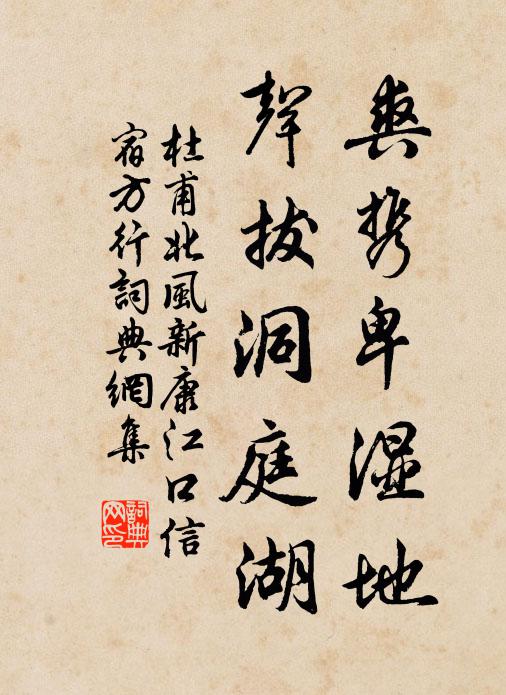 爽携卑湿地
聲拔洞庭湖
杜甫北風新康江口信
宿方行詞典網集
詞典网印